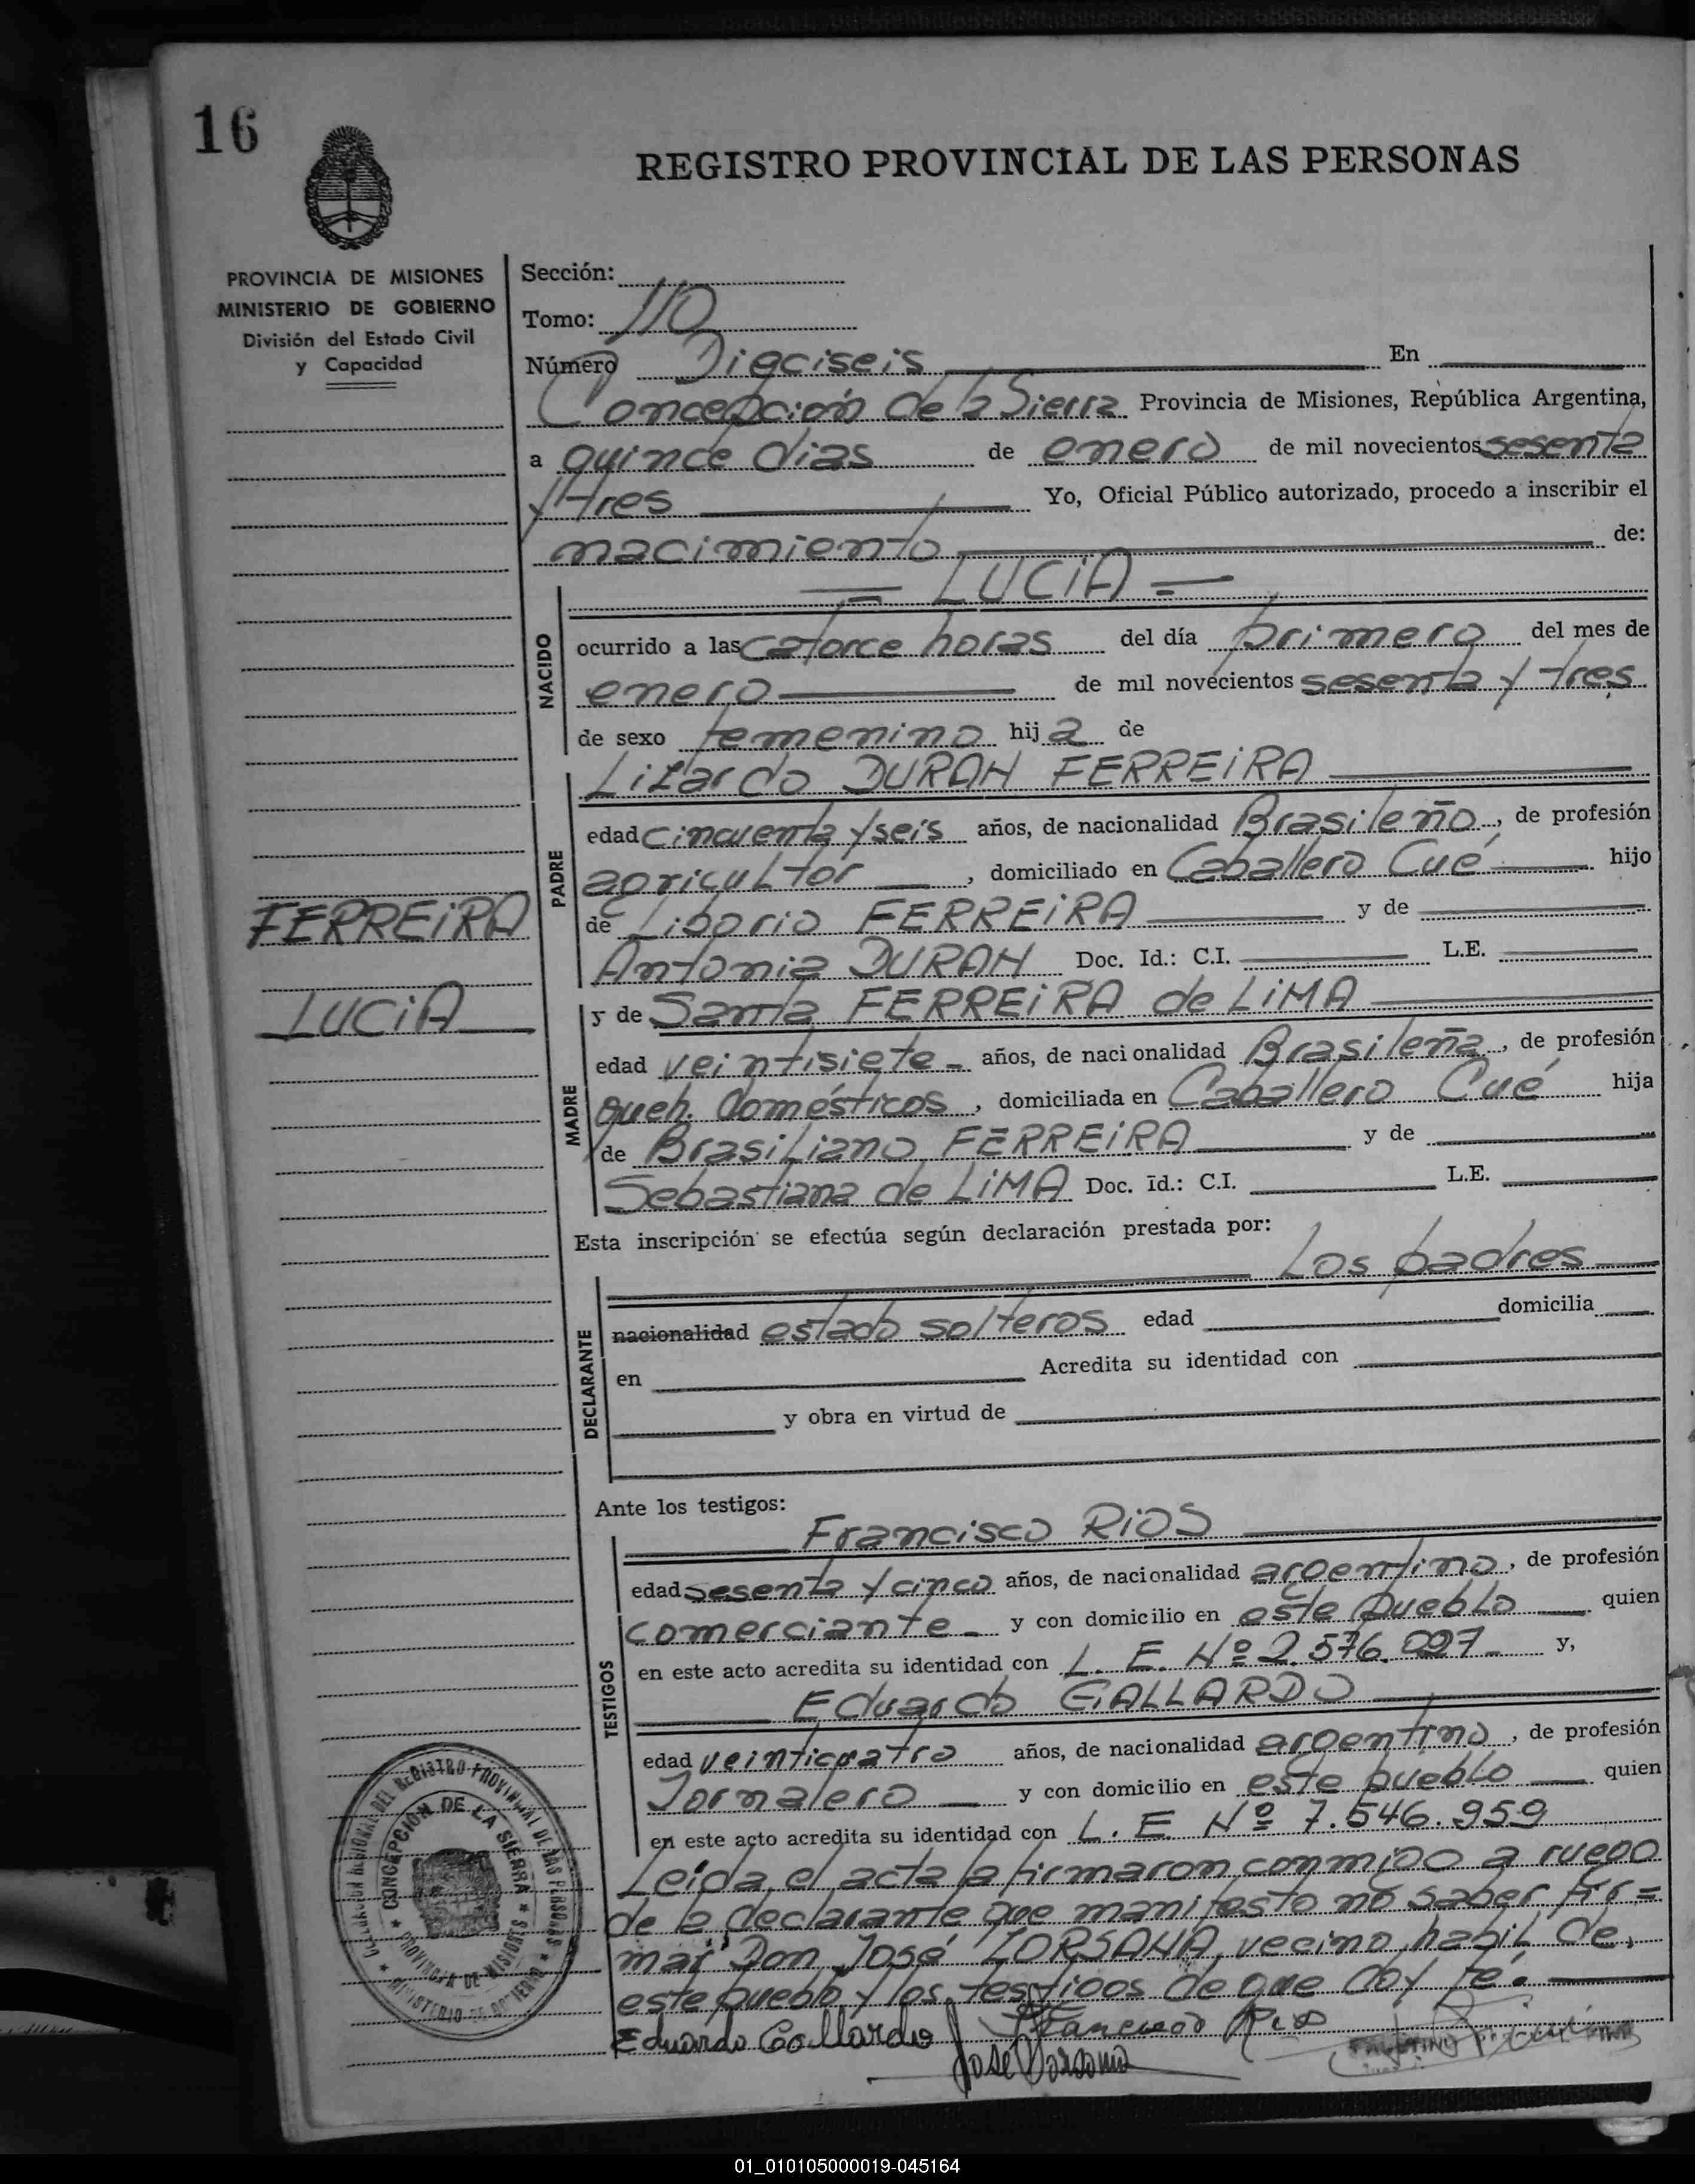 16
REGISTRO PROVINCIAL DE LAS PERSONAS
PROVINCIA DE MISIONES
MINISTERIO DE GOBIERNO
División del Estado Civil
y Capacidad
FERREIRA
LUCIA
Sección:
Tomo: 110
Número Dieciseis En
Concepción de la Sierra Provincia de Misiones, República Argentina,
a quince dias de enero de mil novecientos sesenta
y tres Yo, Oficial Público autorizado, procedo a inscribir el
nacimiento de:
= LUCIA =
NACIDO
ocurrido a las catorce horas del día primero del mes de
enero de mil novecientos sesenta y tres
de sexo femenino hija de
PADRE
Litardo DURAN FERREIRA
edad cincuenta y seis años, de nacionalidad Brasileño, de profesión
agricultor, domiciliado en Caballero Cué hijo
de Liborio FERREIRA y de
Antonia DURAN Doc. Id.: C.I. L.E.
MADRE
y de Santa FERREIRA de LIMA
edad veintisiete años, de nacionalidad Brasileña, de profesión
queh. domésticos, domiciliada en Caballero Cué hija
de Brasiliano FERREIRA y de
Sebastiana de LIMA Doc. Id.: C.I. L.E.
Esta inscripción se efectúa según declaración prestada por:
Los padres
DECLARANTE
nacionalidad estado solteros edad domicilia
en Acredita su identidad con
y obra en virtud de
Ante los testigos:
TESTIGOS
Francisco RIOS
edad sesenta y cinco años, de nacionalidad argentino, de profesión
comerciante y con domicilio en este pueblo quien
en este acto acredita su identidad con L. E. Nº 2.576.027 y,
Eduardo GALLARDO
edad veinticuatro años, de nacionalidad argentino, de profesión
Jornalero y con domicilio en este pueblo quien
en este acto acredita su identidad con L. E. Nº 7.546.959
Leida el acta la firmaron conmigo a ruego
de la declarante que manifesto no saber fir=
mar Don José ZORSANA, vecino habil de
este pueblo y los testigos de que doy fé.
Eduardo Gallardo Francisco Rios
Jose
DELEGACION REGIONAL DEL REGISTRO PROVINCIAL DE LAS PERSONAS
MINISTERIO DE GOBIERNO
CONCEPCIÓN DE LA SIERRA
PROVINCIA DE MISIONES
01_010105000019-045164